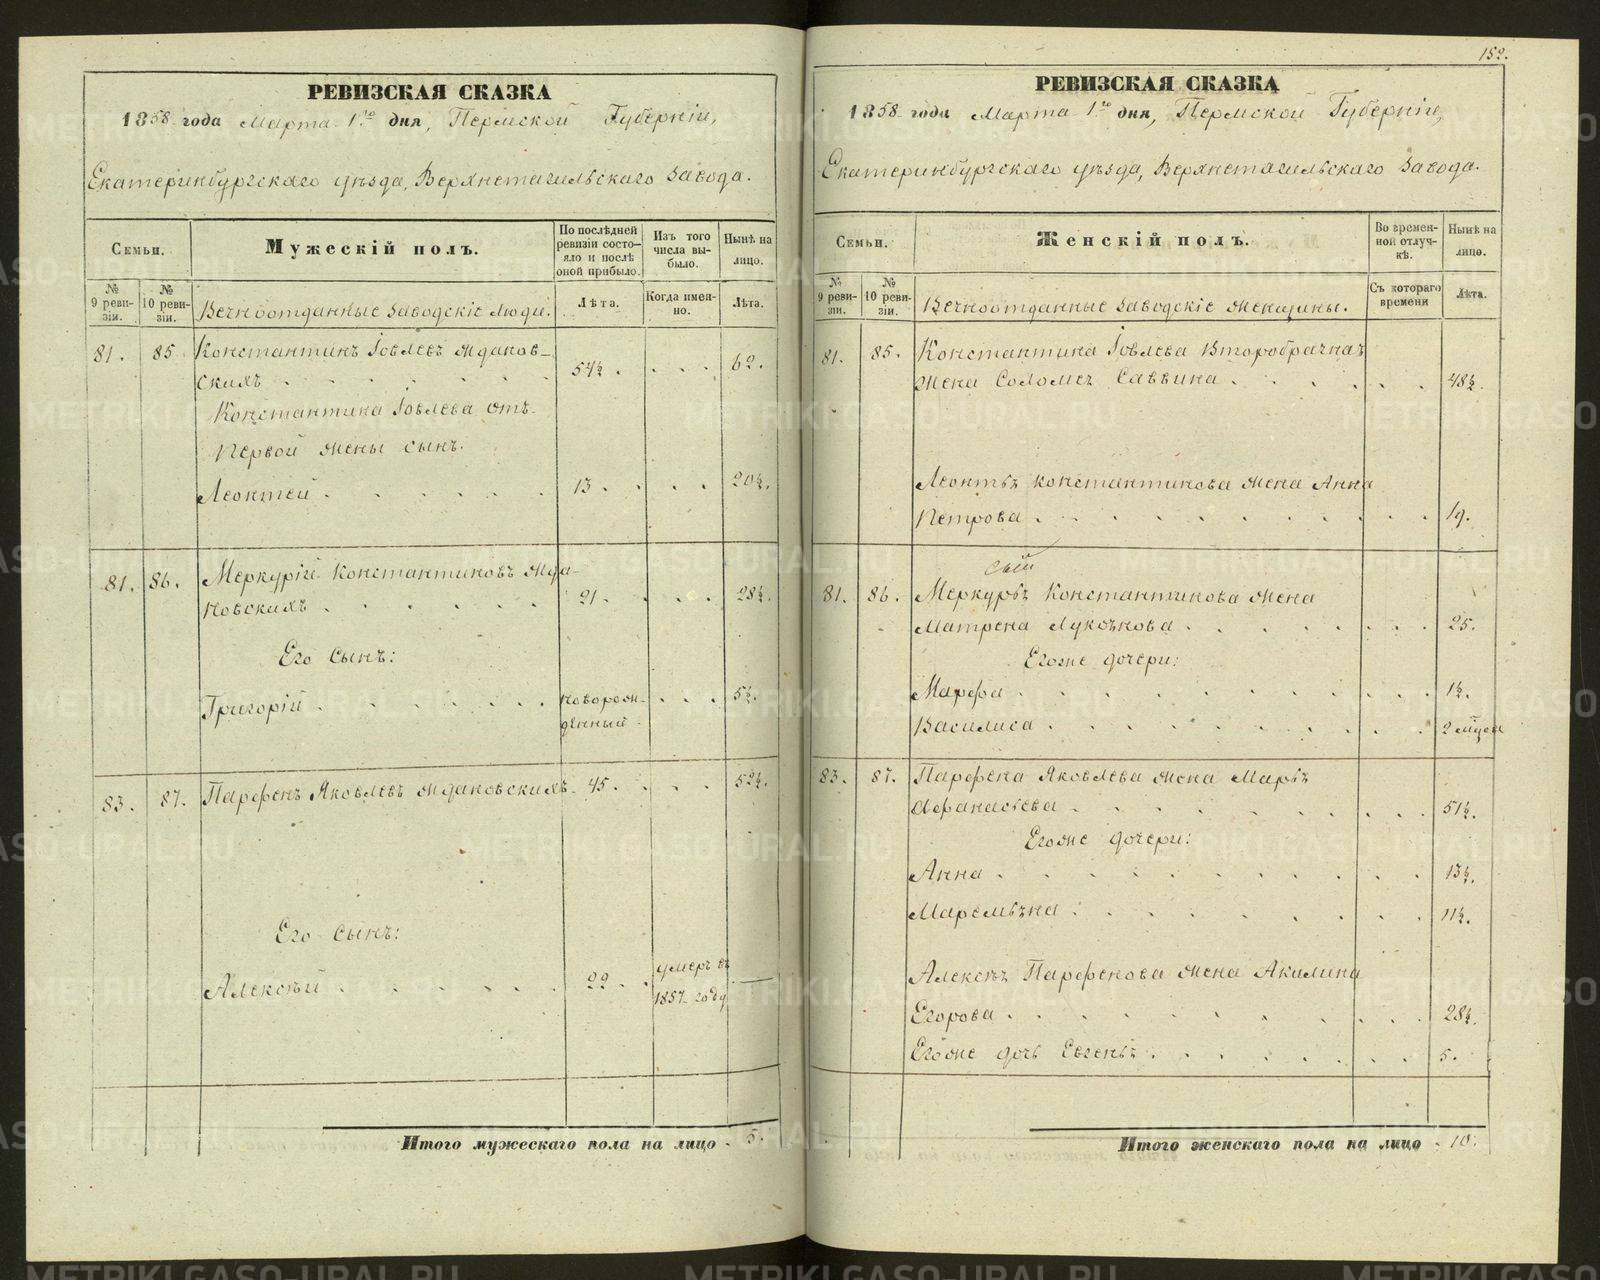 РЕВИЗСКАЯ СКАЗКА
1858 года Марта 1го дня, Пермской Губерніи,
Екатеринбургскаго уѣзда, Верхнетагильскаго завода.
Семьи.
Мужескій полъ.
По послѣдней ревизіи состояло и послѣ оной прибыло.
Изъ того числа выбыло.
Нынѣ на лицо.
№ 9 ревизіи.
№ 10 ревизіи.
Вечноотданные заводскіе люди.
Лѣта.
Когда именно.
Лѣта.
81. 85. Константинъ Іовлевъ Жданов-
скихъ 54½. 62.
Константина Іовлева отъ
первой жены сынъ.
Леонтей 13. 20½.
81. 86. Меркурій Константиновъ Жда-
новскихъ 21. 28½.
Его сынъ:
Григорій новорож- 5½.
денный
83. 87. Парфенъ Яковлевъ Ждановскихъ 45. 52½.
Его сынъ:
Алексѣй 22. умеръ въ —
1857 году
Итого мужескаго пола на лицо 5.
152.
РЕВИЗСКАЯ СКАЗКА
1858 года Марта 1го дня, Пермской Губерніи,
Екатеринбургскаго уѣзда, Верхнетагильскаго завода.
Семьи.
Женскій полъ.
Во временной отлучкѣ.
Нынѣ на лицо.
№ 9 ревизіи.
№ 10 ревизіи.
Вечноотданные заводскіе женщины.
Съ котораго времени
Лѣта.
81. 85. Константина Іовлева второбрачная
жена Соломея Саввина 48½.
Леонтья Константинова жена Анна
Петрова 19.
81. 86. Меркурья Константинова жена
Матрена Лукоянова 25.
Егоже дочери:
Марфа 1½.
Василиса 2 мѣсец
83. 87. Парфена Яковлева жена Марья
Афанасьева 51½.
Егоже дочери:
Анна 13½.
Маремьяна 11½.
Алексѣя Парфенова жена Акилина
Егорова 28½.
Егоже дочь Евгенья 5.
Итого женскаго пола на лицо 10.
METRIKI.GASO-URAL.RU